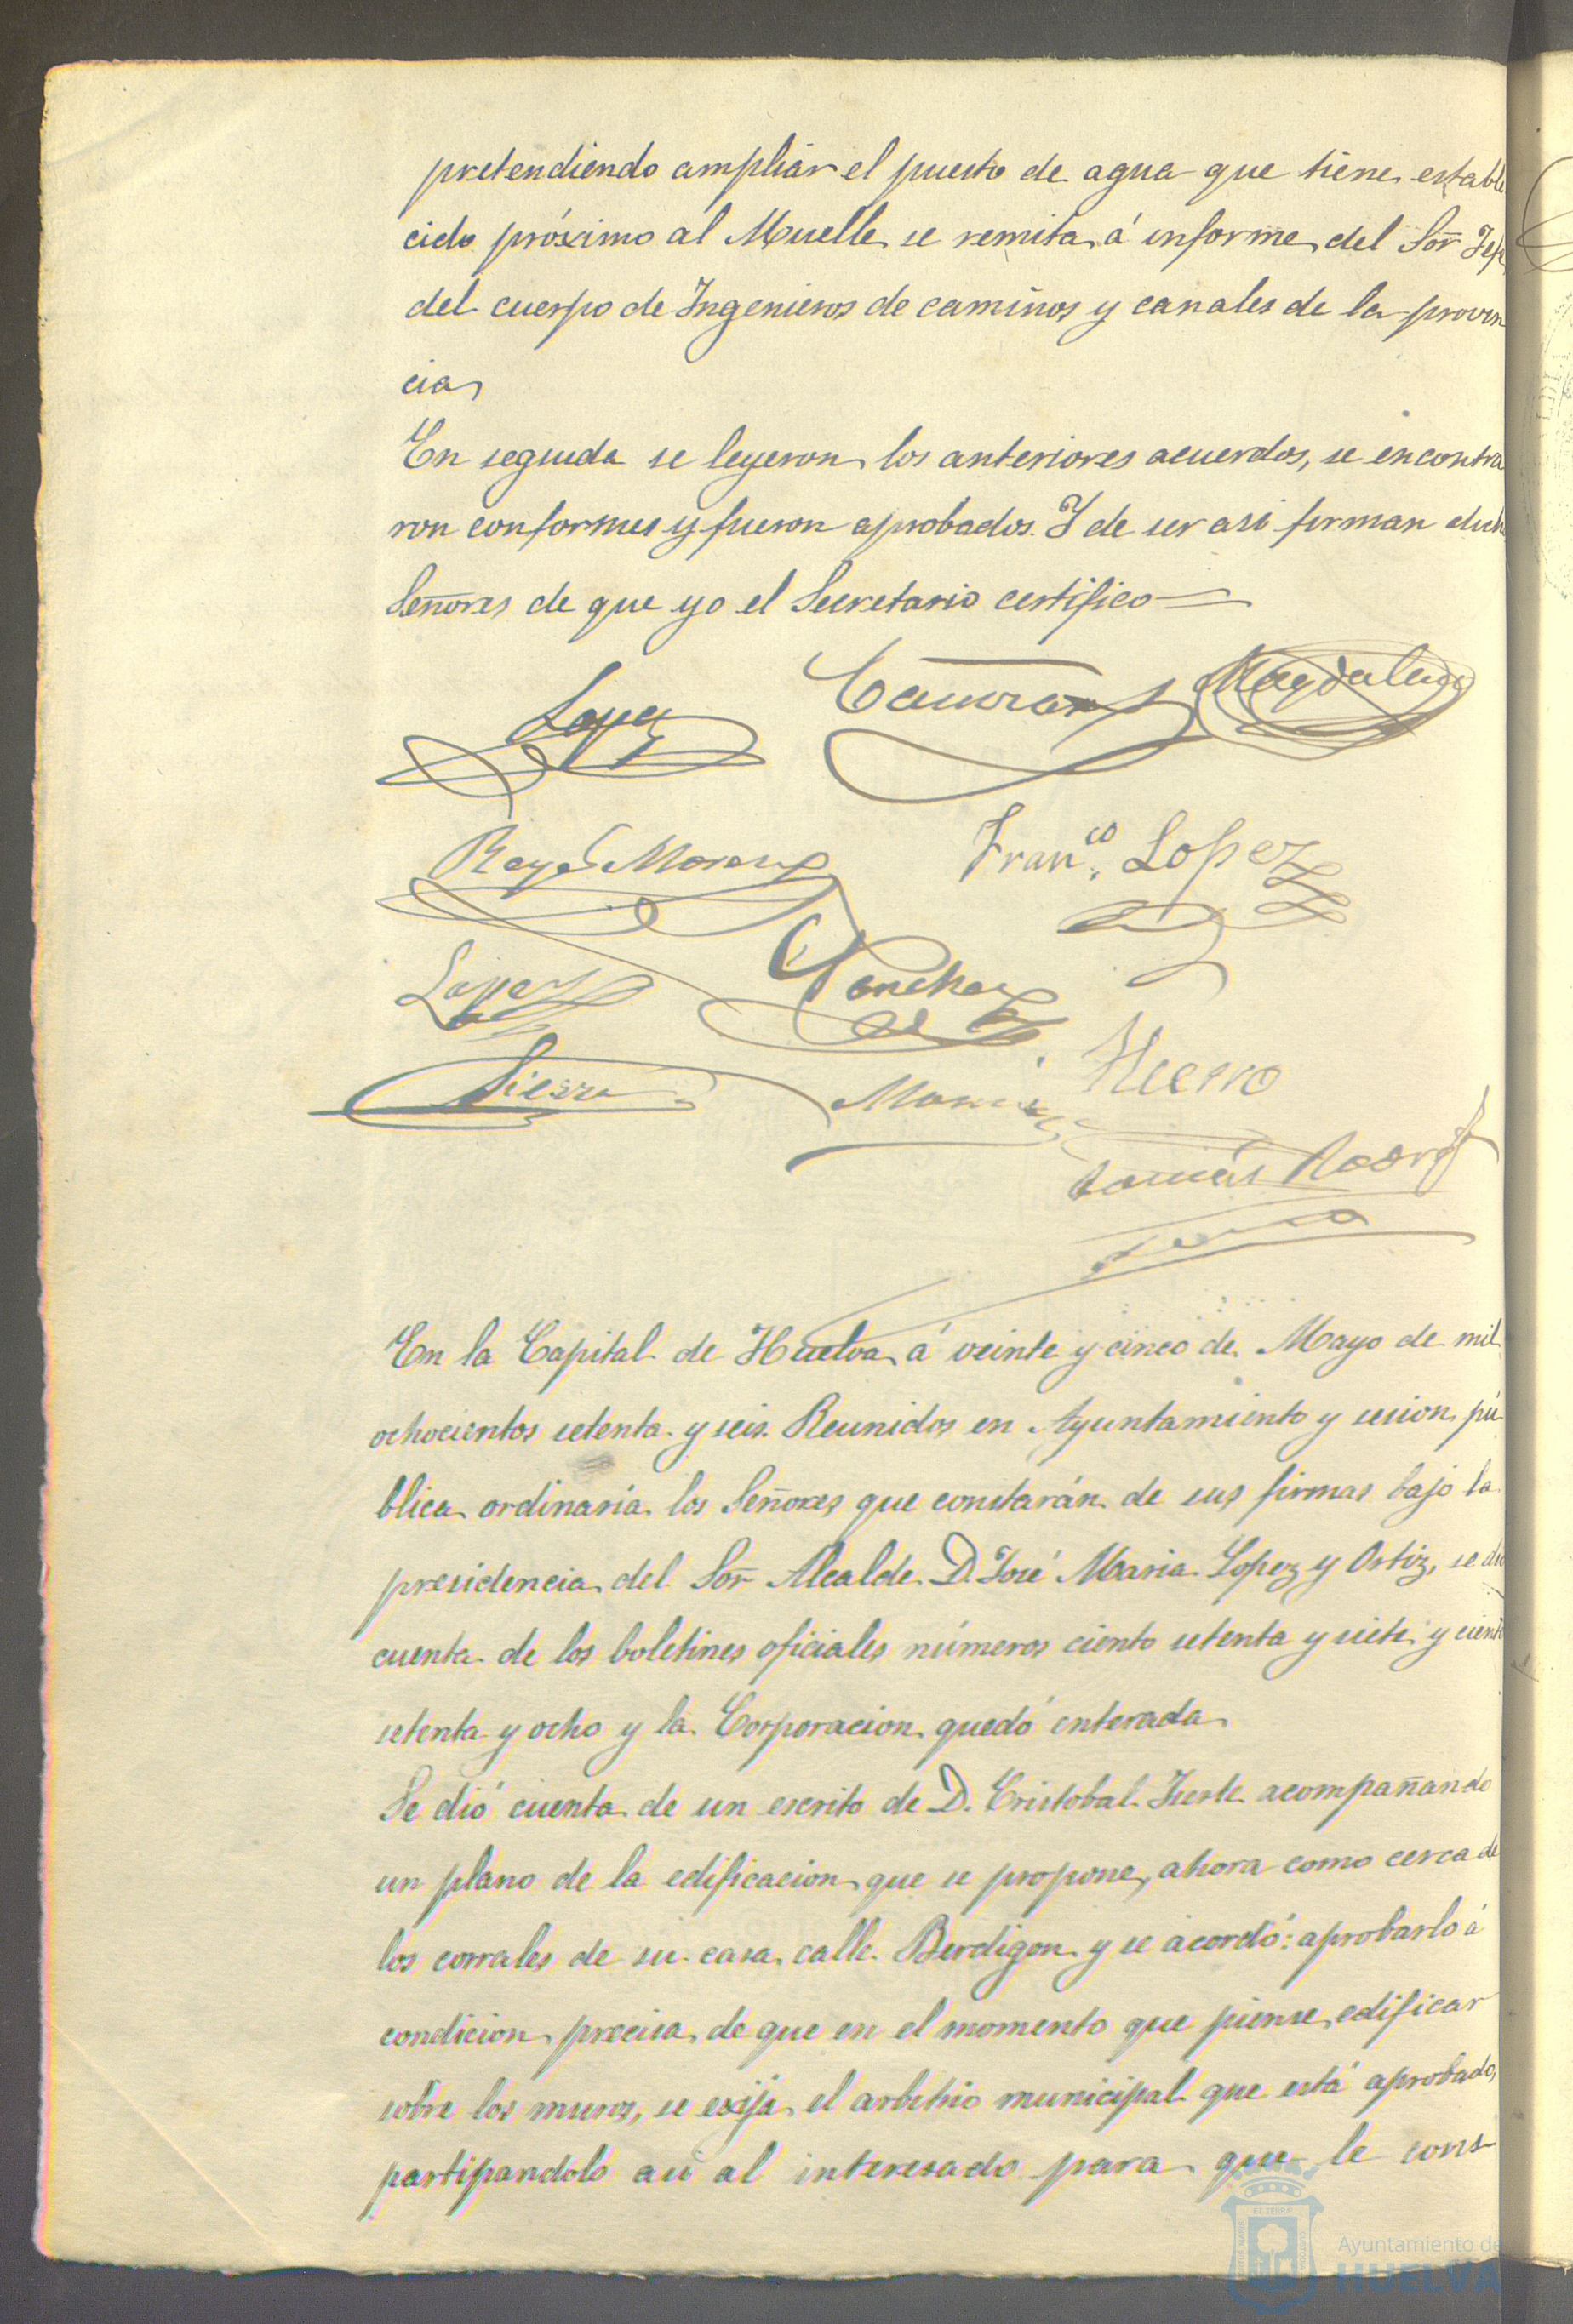 pretendiendo ampliar el puesto de agua que tiene estable
cido próximo al Muelle se remita á informe del Sor̃ Jefe
del cuerpo de Ingenieros de caminos y canales de la provin
cia
En seguida se leyeron los anteriores acuerdos, se encontra
ron conformes y fueron aprobados. Y de ser asi firman dich
Señores de que yo el Secretario certifico=
Lopez
Magdalena
Franco. Lopez
Lopez
Sanchez
Sierra
Hierro
Tomás Rodrig
En la Capital de Huelva á veinte y cinco de Mayo de mil
ochocientos setenta y seis. Reunidos en Ayuntamiento y sesion pú
blica ordinaria los Señores que constarán de sus firmas bajo la
presidencia del Sor̃ Alcalde D. José Maria Lopez y Ortiz, se dió
cuenta de los boletines oficiales números ciento setenta y siete y ciento
setenta y ocho y la Corporacion quedó enterada
Se dió cuenta de un escrito de D. Cristobal acompañando
un plano de la edificacion que se propone, ahora como cerca de
los corrales de su casa calle Berdigon y se acordó: aprobarlo á
condicion precisa de que en el momento que piense edificar
sobre los muros, se exija el arbitrio municipal que está aprobado,
partipandolo asi al interesado para que le cons-
Ayuntamiento de
HUELVA